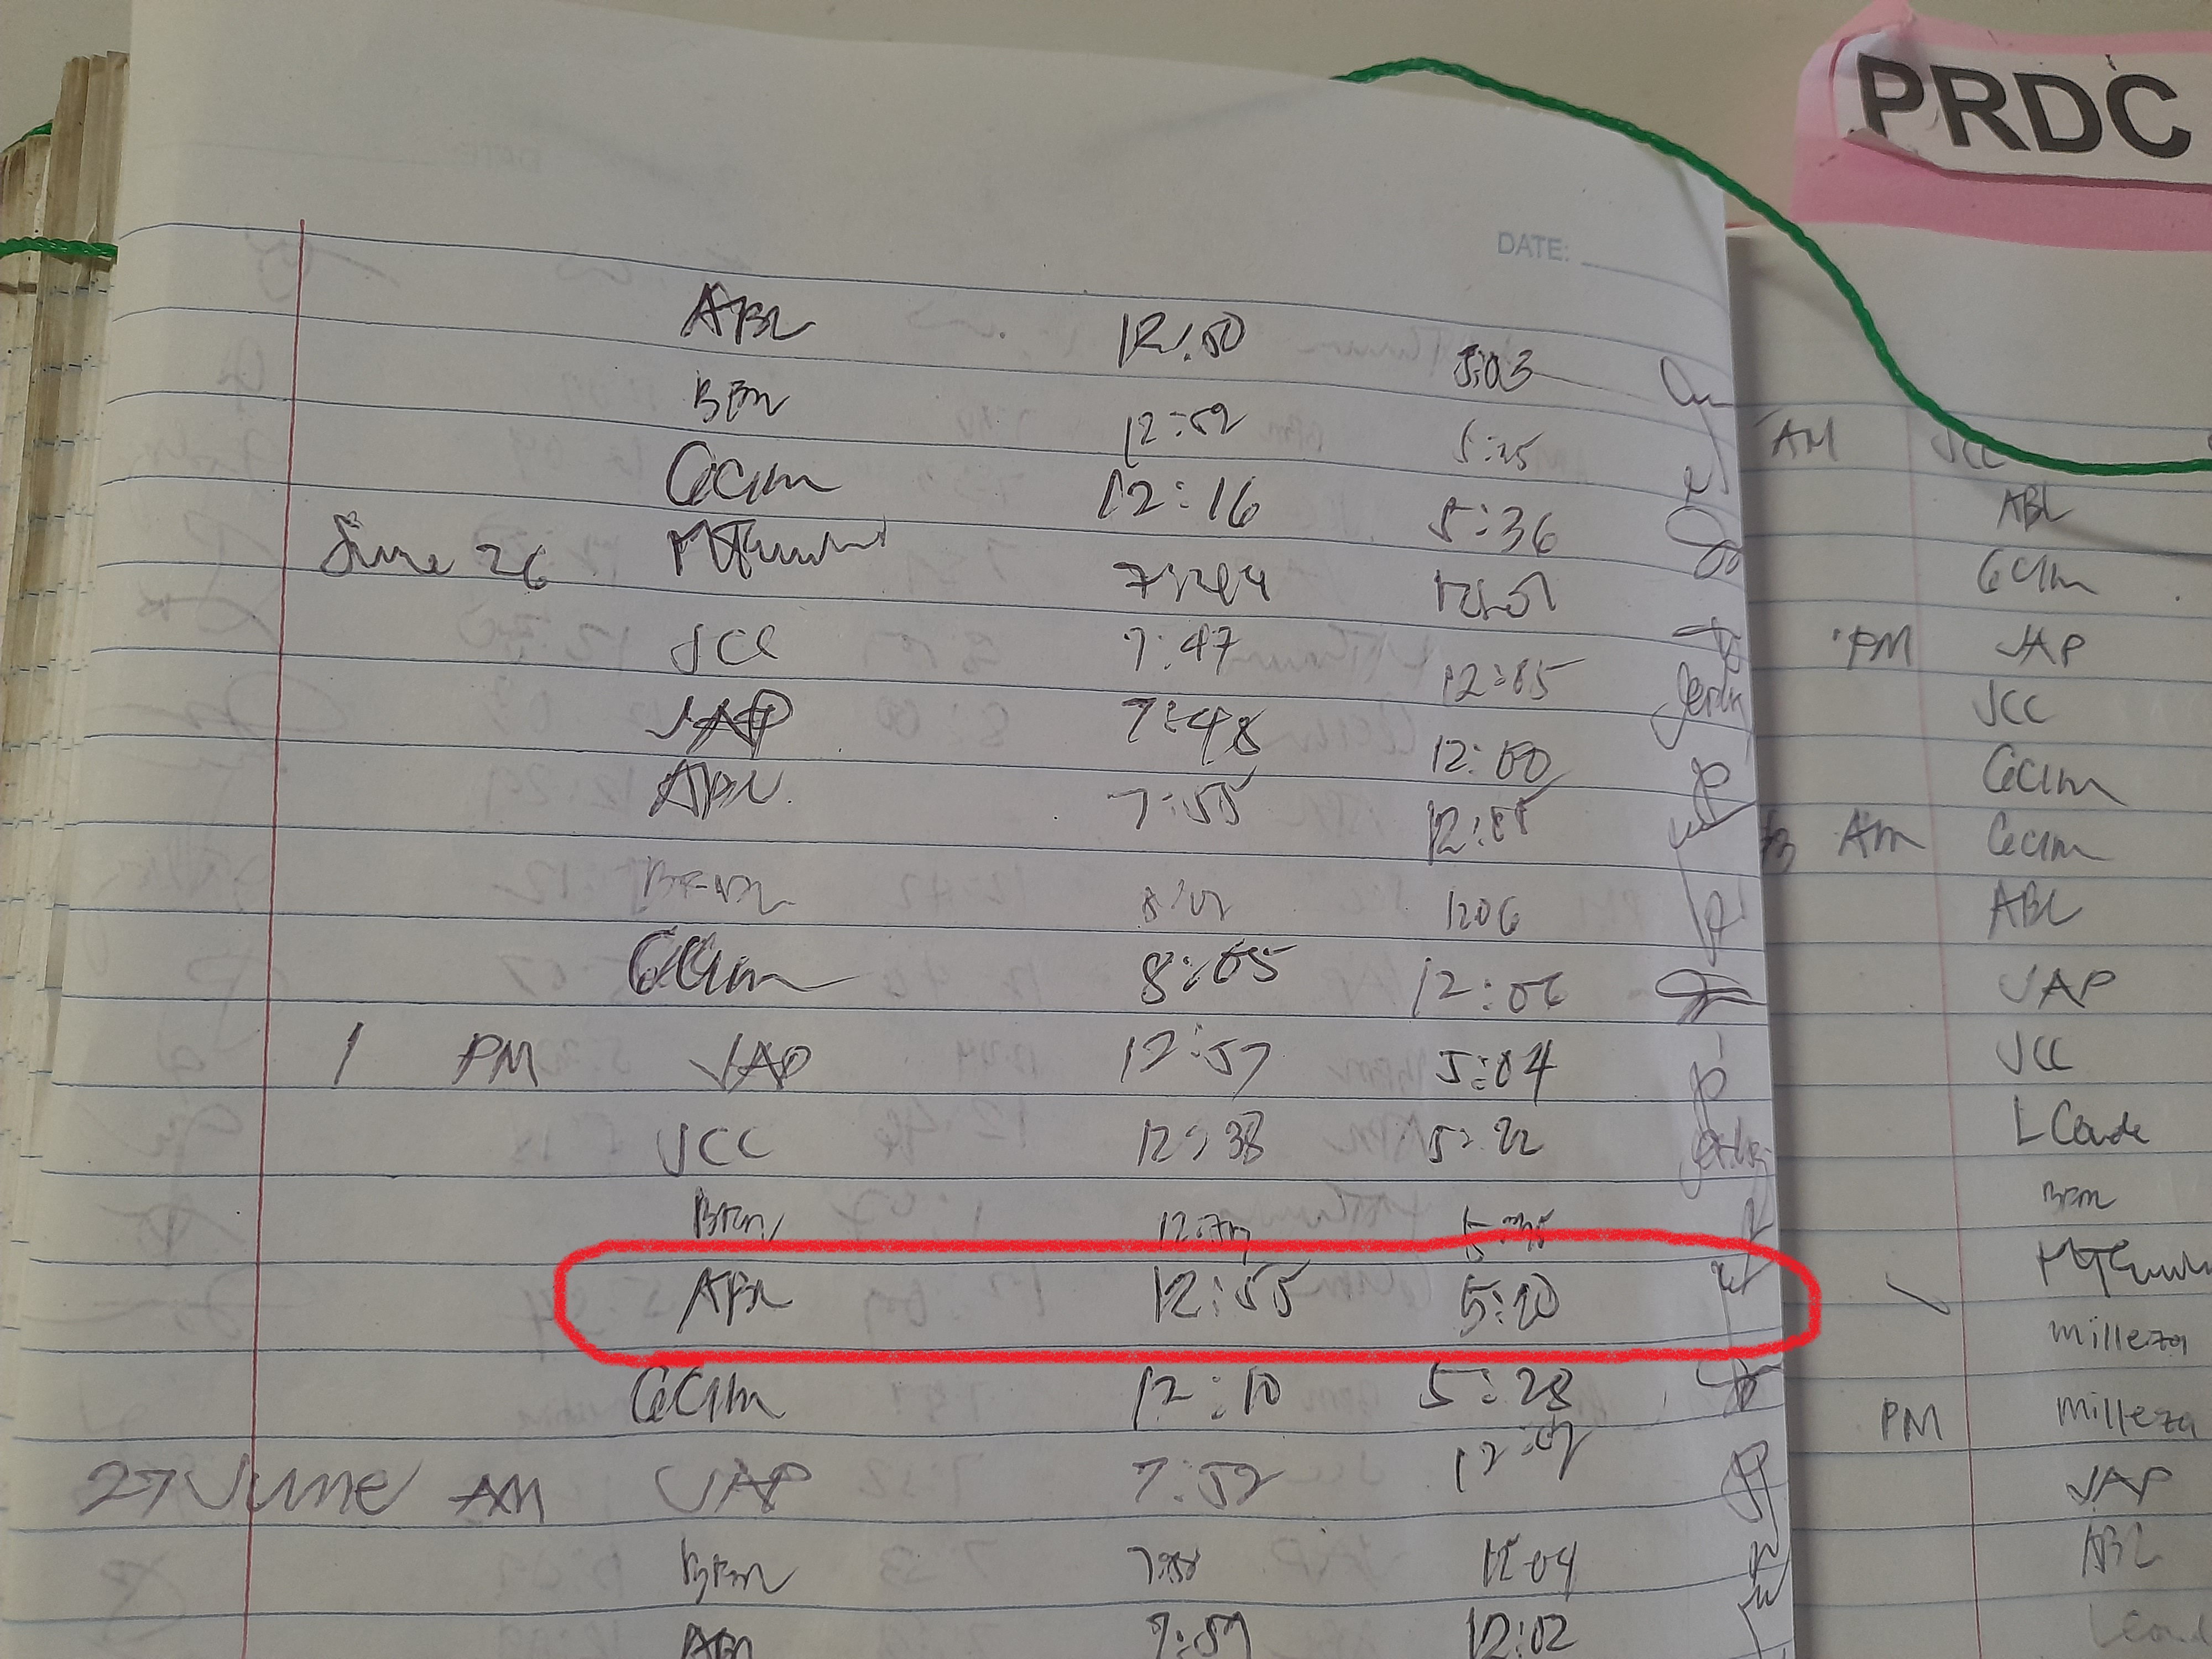 PRDC
DATE:
ABL 12:50 5:03
BFM 12:52 5:25
GCIM 12:16 5:36
June 26 7:44 12:01
JCC 7:47 12:05
JAP 7:48 12:00
ABL 7:55 12:05
BFM 8:02 1206
GCIM 8:05 12:06
1 PM JAP 12:57 5:04
JCC 12:38 5:22
BFM
ABL 12:55 5:20
GCIM 12:10 5:28
27 June AM JAP 7:52 12:02
BFM 7:58 12:04
ABL 7:59 12:02
AM JCC
ABL
GCIM
PM JAP
JCC
GCIM
AM GCIM
ABL
JAP
JCC
L Conde
BFM
milleza
PM milleza
JAP
ABL